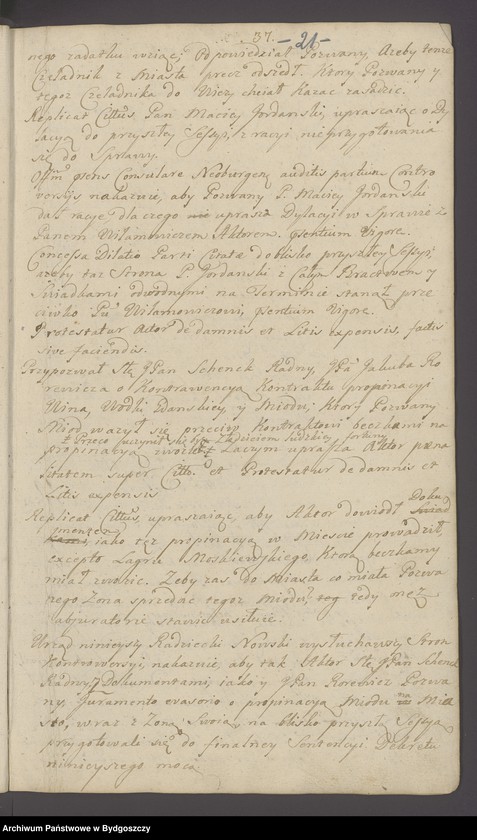 37. -21-
nego zadatku wziąć; Odpowiedział Pozwany, Ażeby toraz
Czeladnik z Miasta precz odszedł. Ktory Pozwany y
tegoż Czeladnika do Wieży chciał Kazać zasadzić.
Replicat Cittus, Pan Maciey Jordanski, upraszaiąc o Dy-
lacyą do przyszłey Sessyi, z racyi nieprzygotowania
się do Sprawy.
Offm psens Consulare Neoburgen, auditis partium Contro
versijs, nakazuie, aby Pozwany P. Maciey Jordanski
dał racye dla czego uprasza Dylacyi w Sprawie z
Panem Wilamowiczem Aktorem. psentium Vigore.
Concessa Dilatio Parti Citatæ do blisko przyszłey Sessyi,
ażeby taż Strona P. Jordanski z Całym Bractwem y
Swiadkami dowodnymi na Terminie stanął prze
ciwko Pu Wilamowiczowi, psentium Vigore.
Protestatur Actor de damnis et Litis expensis, factis
sive faciendis.
Przypozwał Sltę JPan Schenck Radny, JPa Jakuba Ro
rewicza o Kontrawencyą Kontraktu propinacyi
Wina, Wodki Gdanskiey, y Miodu; Ktory Pozwany
Miod ważył się przeciw Kontraktowi beczkami na
z Przeco fortuny
propinacyą zwozić. Zaczym uprasza Aktor pæna
litatem super Citto. et Protestatur de damnis et
Litis expensis
Doku
Replicat Cittus, upraszaiąc, aby Aktor dowiodł
mentem
iako tęż propinacyą w Miescie prowadził,
excepto Lagru Moskiewskiego, Ktorą beczkamy
miał zwozić. Żeby zaś do Miasta co miała Pozwa
nego Żona sprzedać tegoż Miodu, teg tedy mąż
abjuratorie stawić usiłuie.
Urząd ninieyszy Radziecki Nowski wysłuchawszy Stron
Kontrowersyi, nakazuie, aby tak Aktor Sltę JPan Schenck
Radny z Dokumentami, iako y JPan Rorewicz Pozwa
ny, Juramento evasorio o propinacyą Miodu na Mias
to, wraz z Żoną Swoią, na blisko przyszłą Sessyą
przygotowali się do finalney Sentencyi. Dekretu
ninieyszego mocą.
Archiwum Państwowe w Bydgoszczy